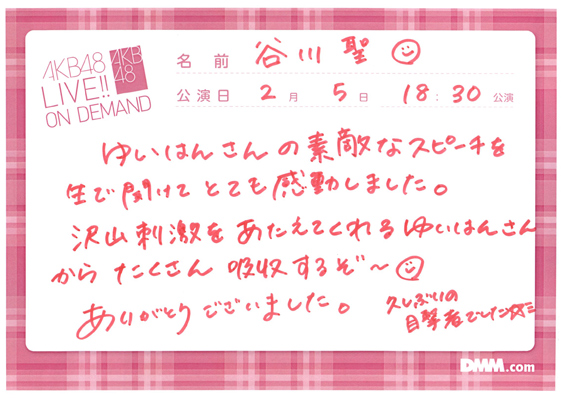 AKB48
LIVE!!
ON DEMAND
AKB
48
名前 谷川 聖
公演日 2月 5日 18:30 公演
ゆいはんさんの素敵なスピーチを
生で聞けてとても感動しました。
沢山刺激をあたえてくれるゆいはんさん
からたくさん吸収するぞ〜
ありがとうございました。
久しぶりの
目撃者でした
DMM.com